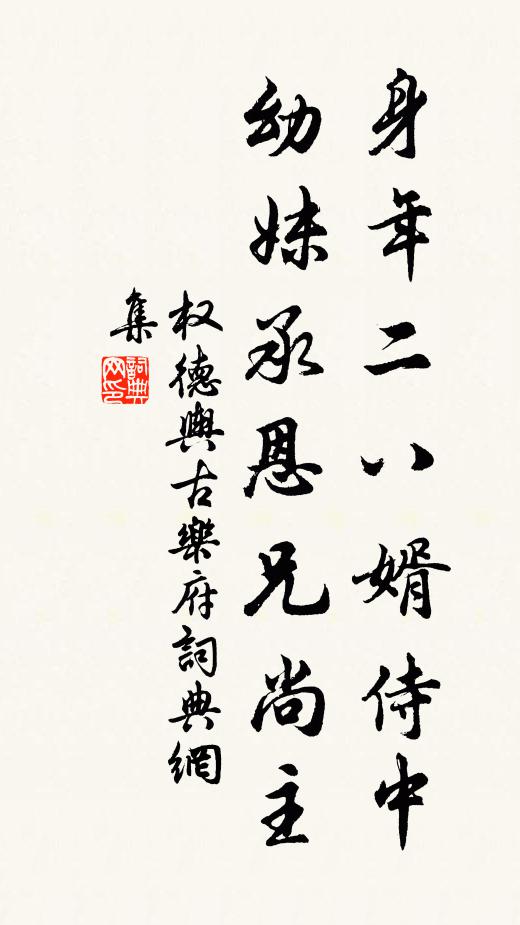 身年二八婿侍中
幼妹承恩兄尚主
权德舆古樂府詞典網
集
詞典
网印